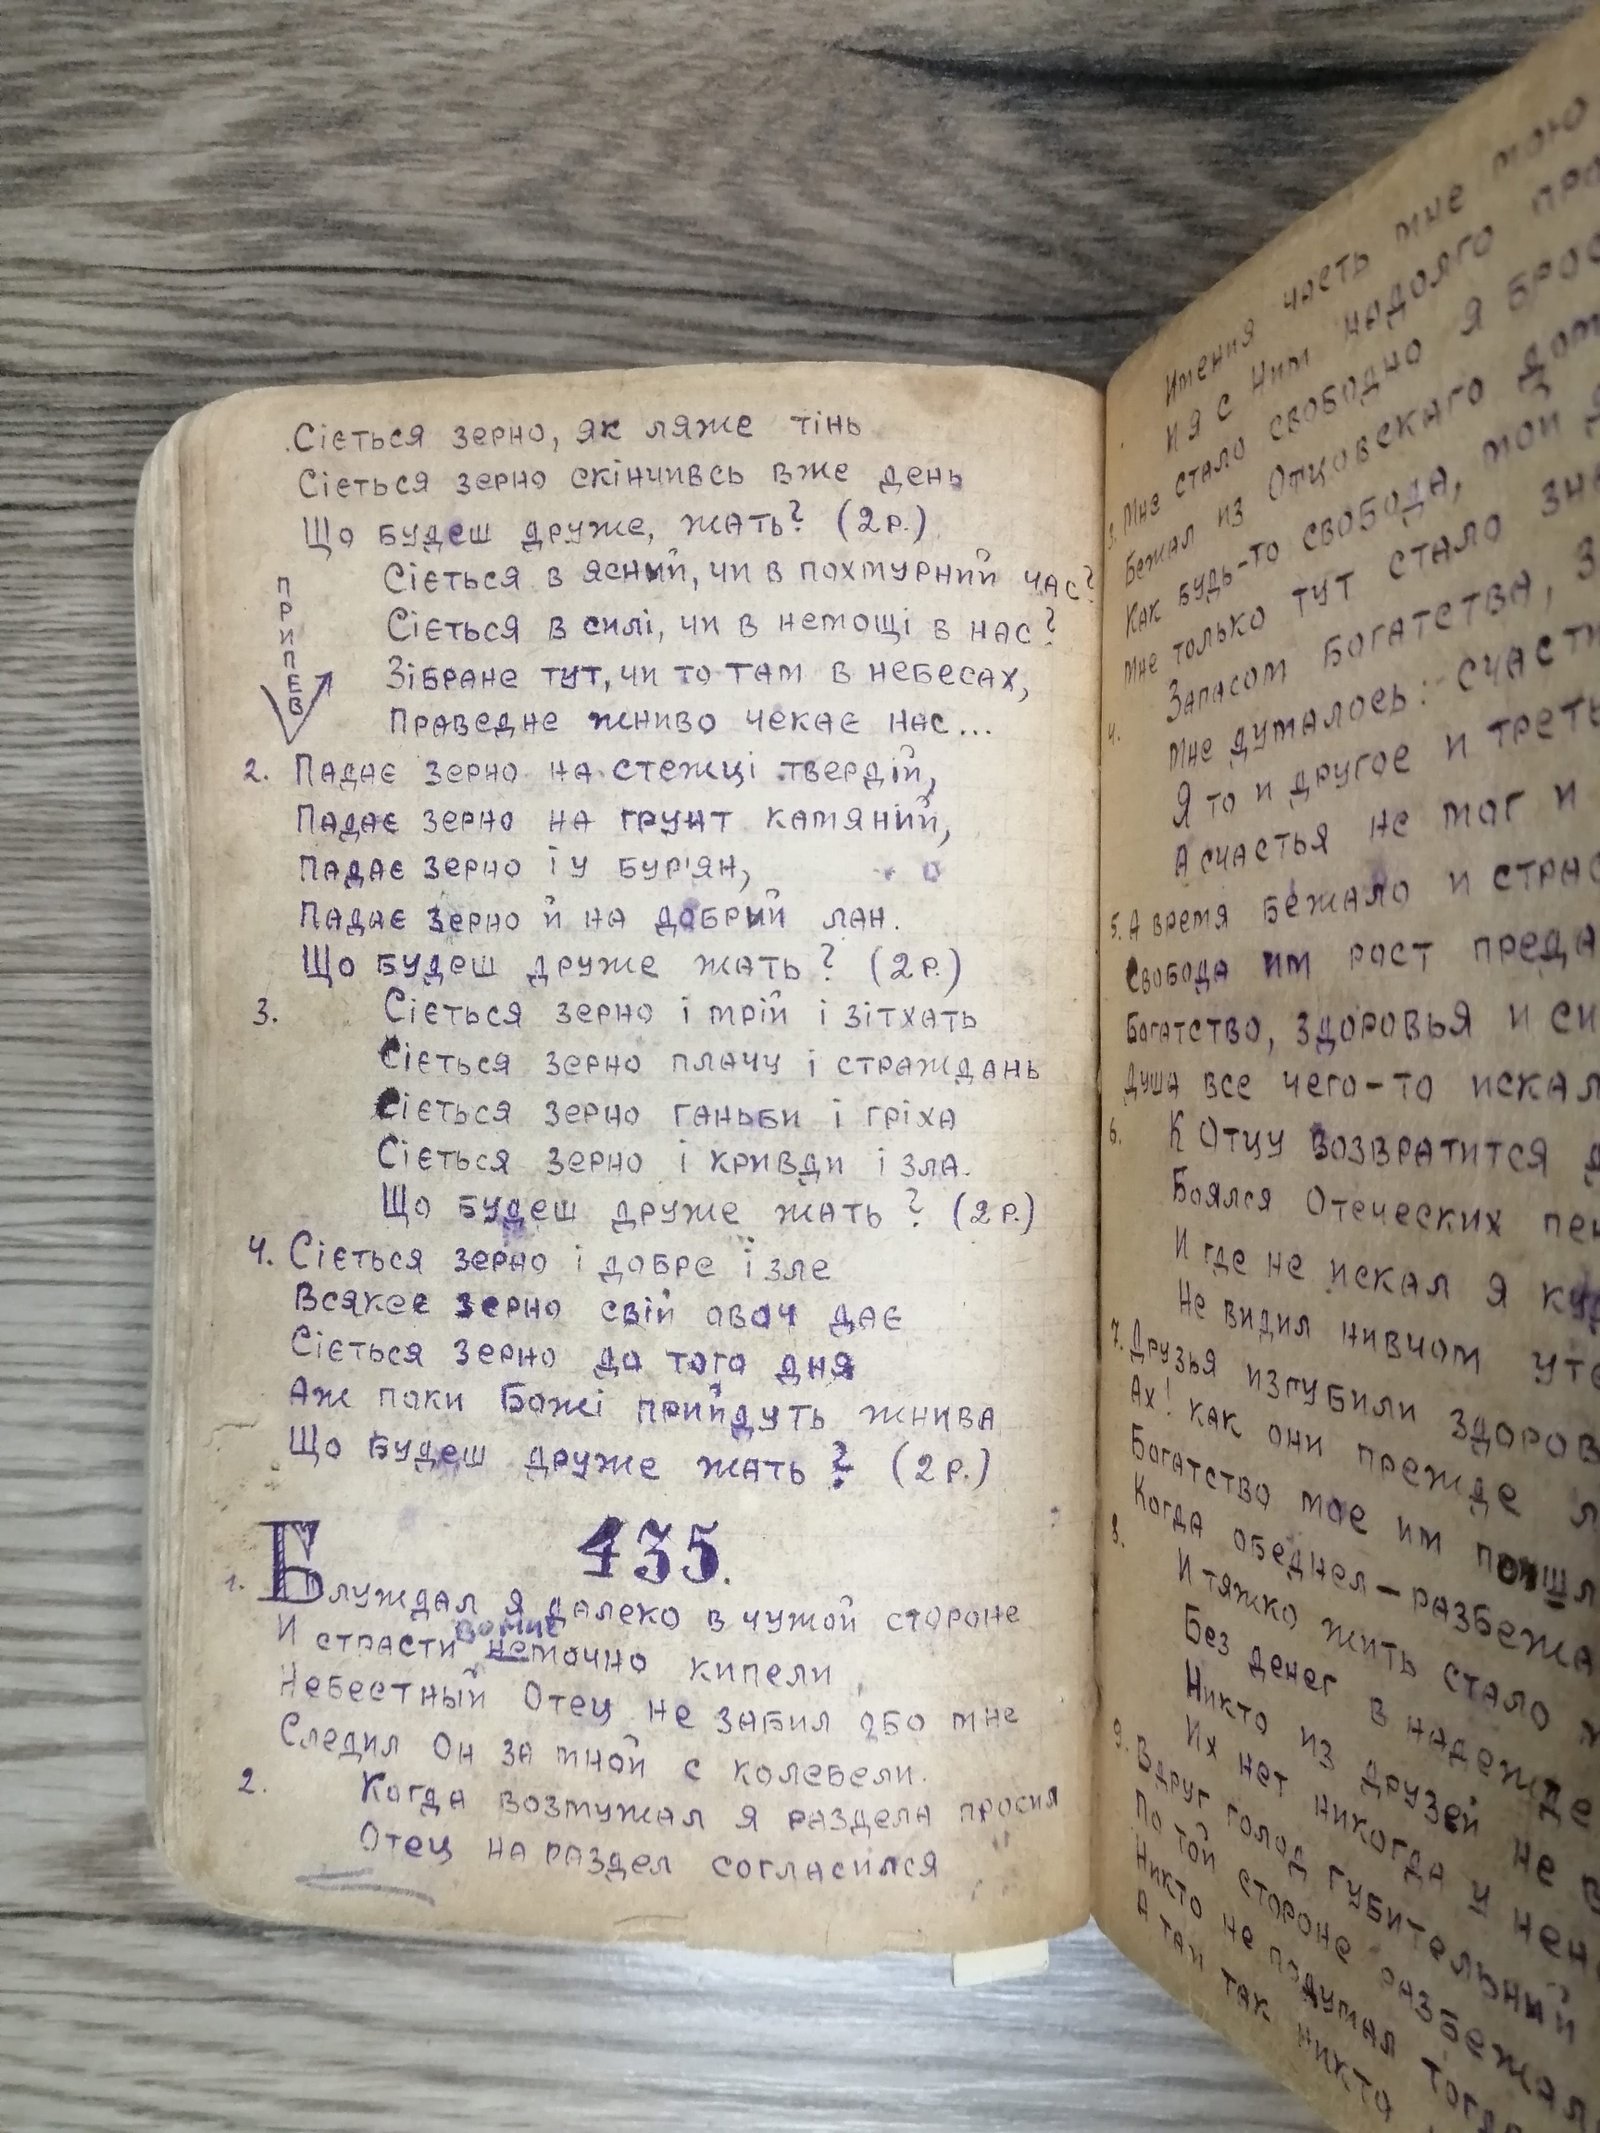 Сіється зерно, як ляже тінь
Сіється зерно скінчивсь вже день
Що будеш друже, жать? (2 р.)
ПРИПЄВ
Сіється в ясний, чи в похмурний час?
Сіється в силі, чи в немощі в нас?
Зібране тут, чи то там в небесах,
Праведне жниво чекає нас...
2. Падає зерно на стежці твердій,
Падає зерно на грунт камяний,
Падає зерно і у бур'ян,
Падає зерно й на добрий лан.
Що будеш друже жать? (2 р.)
3. Сіється зерно і мрій і зітхать
Сіється зерно плачу і страждань
Сіється зерно ганьби і гріха
Сіється зерно і кривди і зла.
Що будеш друже жать? (2 р.)
4. Сіється зерно і добре і зле
Всякеє зерно свій овоч дає
Сіється зерно до того дня
Аж поки Божі прийдуть жнива
Що будеш друже жать? (2 р.)
435.
1. Блуждал я далеко в чужой стороне
И страсти немочно кипели
Небестный Отец не забил обо мне
Следил Он за мной с колебели.
2. Когда возмужал я раздела просил
Отец на раздел согласился
Имения часть мне мою
И я с ним надолго
3. Мне стало свободно я
Бежал из Отцовскаго
Как будь-то свобода, мой
Мне только тут стало
4. Запасом богатства,
Мне думалось:
Я то и другое и
А счастья не мог и
5. А время бежало и
Свобода им рост
Богатство, здоровья и
Душа все чего-то
6. К Отцу возвратится
Боялся Отеческих
И где не искал я
Не видил нивчом
7. Друзья изгубили
Ах! как они прежде
Богатство мое им
Когда обеднел-
8. И тяжко жить стало
Без денег в надежде
Никто из друзей не
Их нет никогда у
9. Вдруг голод губительный
По той стороне
Никто не подумал
А там так никто